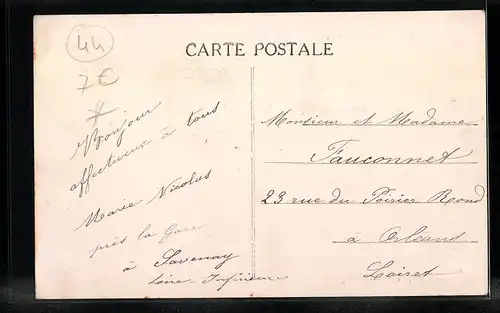 44
7€
CARTE POSTALE
Bonjour
affectueux à tous
Marie Nicolas
près la Gare
à Savenay
Loire Inférieure
Monsieur et Madame
Fauconnet
23 rue du Poirier Rond
à Orléans
Loiret